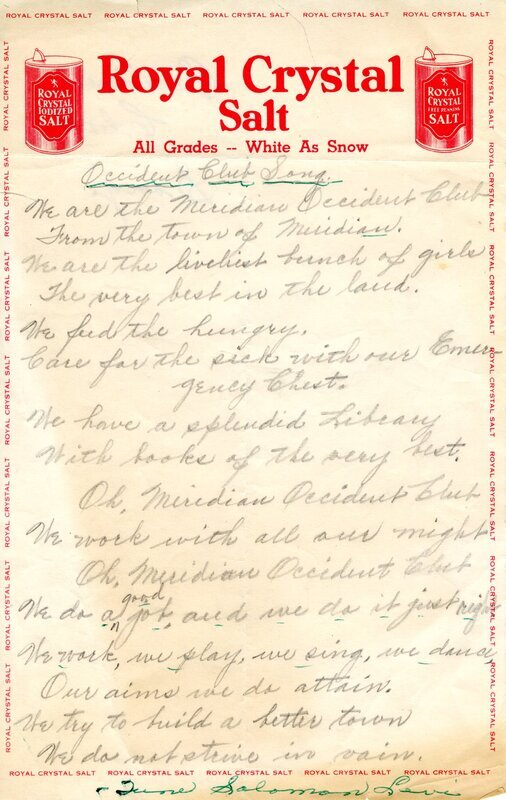 ROYAL CRYSTAL SALT ROYAL CRYSTAL SALT ROYAL CRYSTAL SALT ROYAL CRYSTAL SALT ROYAL CRYSTAL SALT
Royal Crystal
Salt
All Grades -- White As Snow
ROYAL
CRYSTAL
IODIZED
SALT
ROYAL
CRYSTAL
FREE RUNNING
SALT
Occident Club Song.
We are the Meridian Occident Club
From the town of Meridian.
We are the liveliest bunch of girls
The very best in the land.
We feed the hungry.
Care for the sick with our Emer
gency Chest.
We have a splendid Library
With books of the very best.
Oh, Meridian Occident Club
We work with all our might
Oh, Meridian Occident Club
We do a good job, and we do it just right
We work, we play, we sing, we dance,
Our aims we do attain.
We try to build a better town
We do not strive in vain.
ROYAL CRYSTAL SALT ROYAL CRYSTAL SALT ROYAL CRYSTAL SALT ROYAL CRYSTAL SALT ROYAL CRYSTAL SALT
Tune Solomon Levi